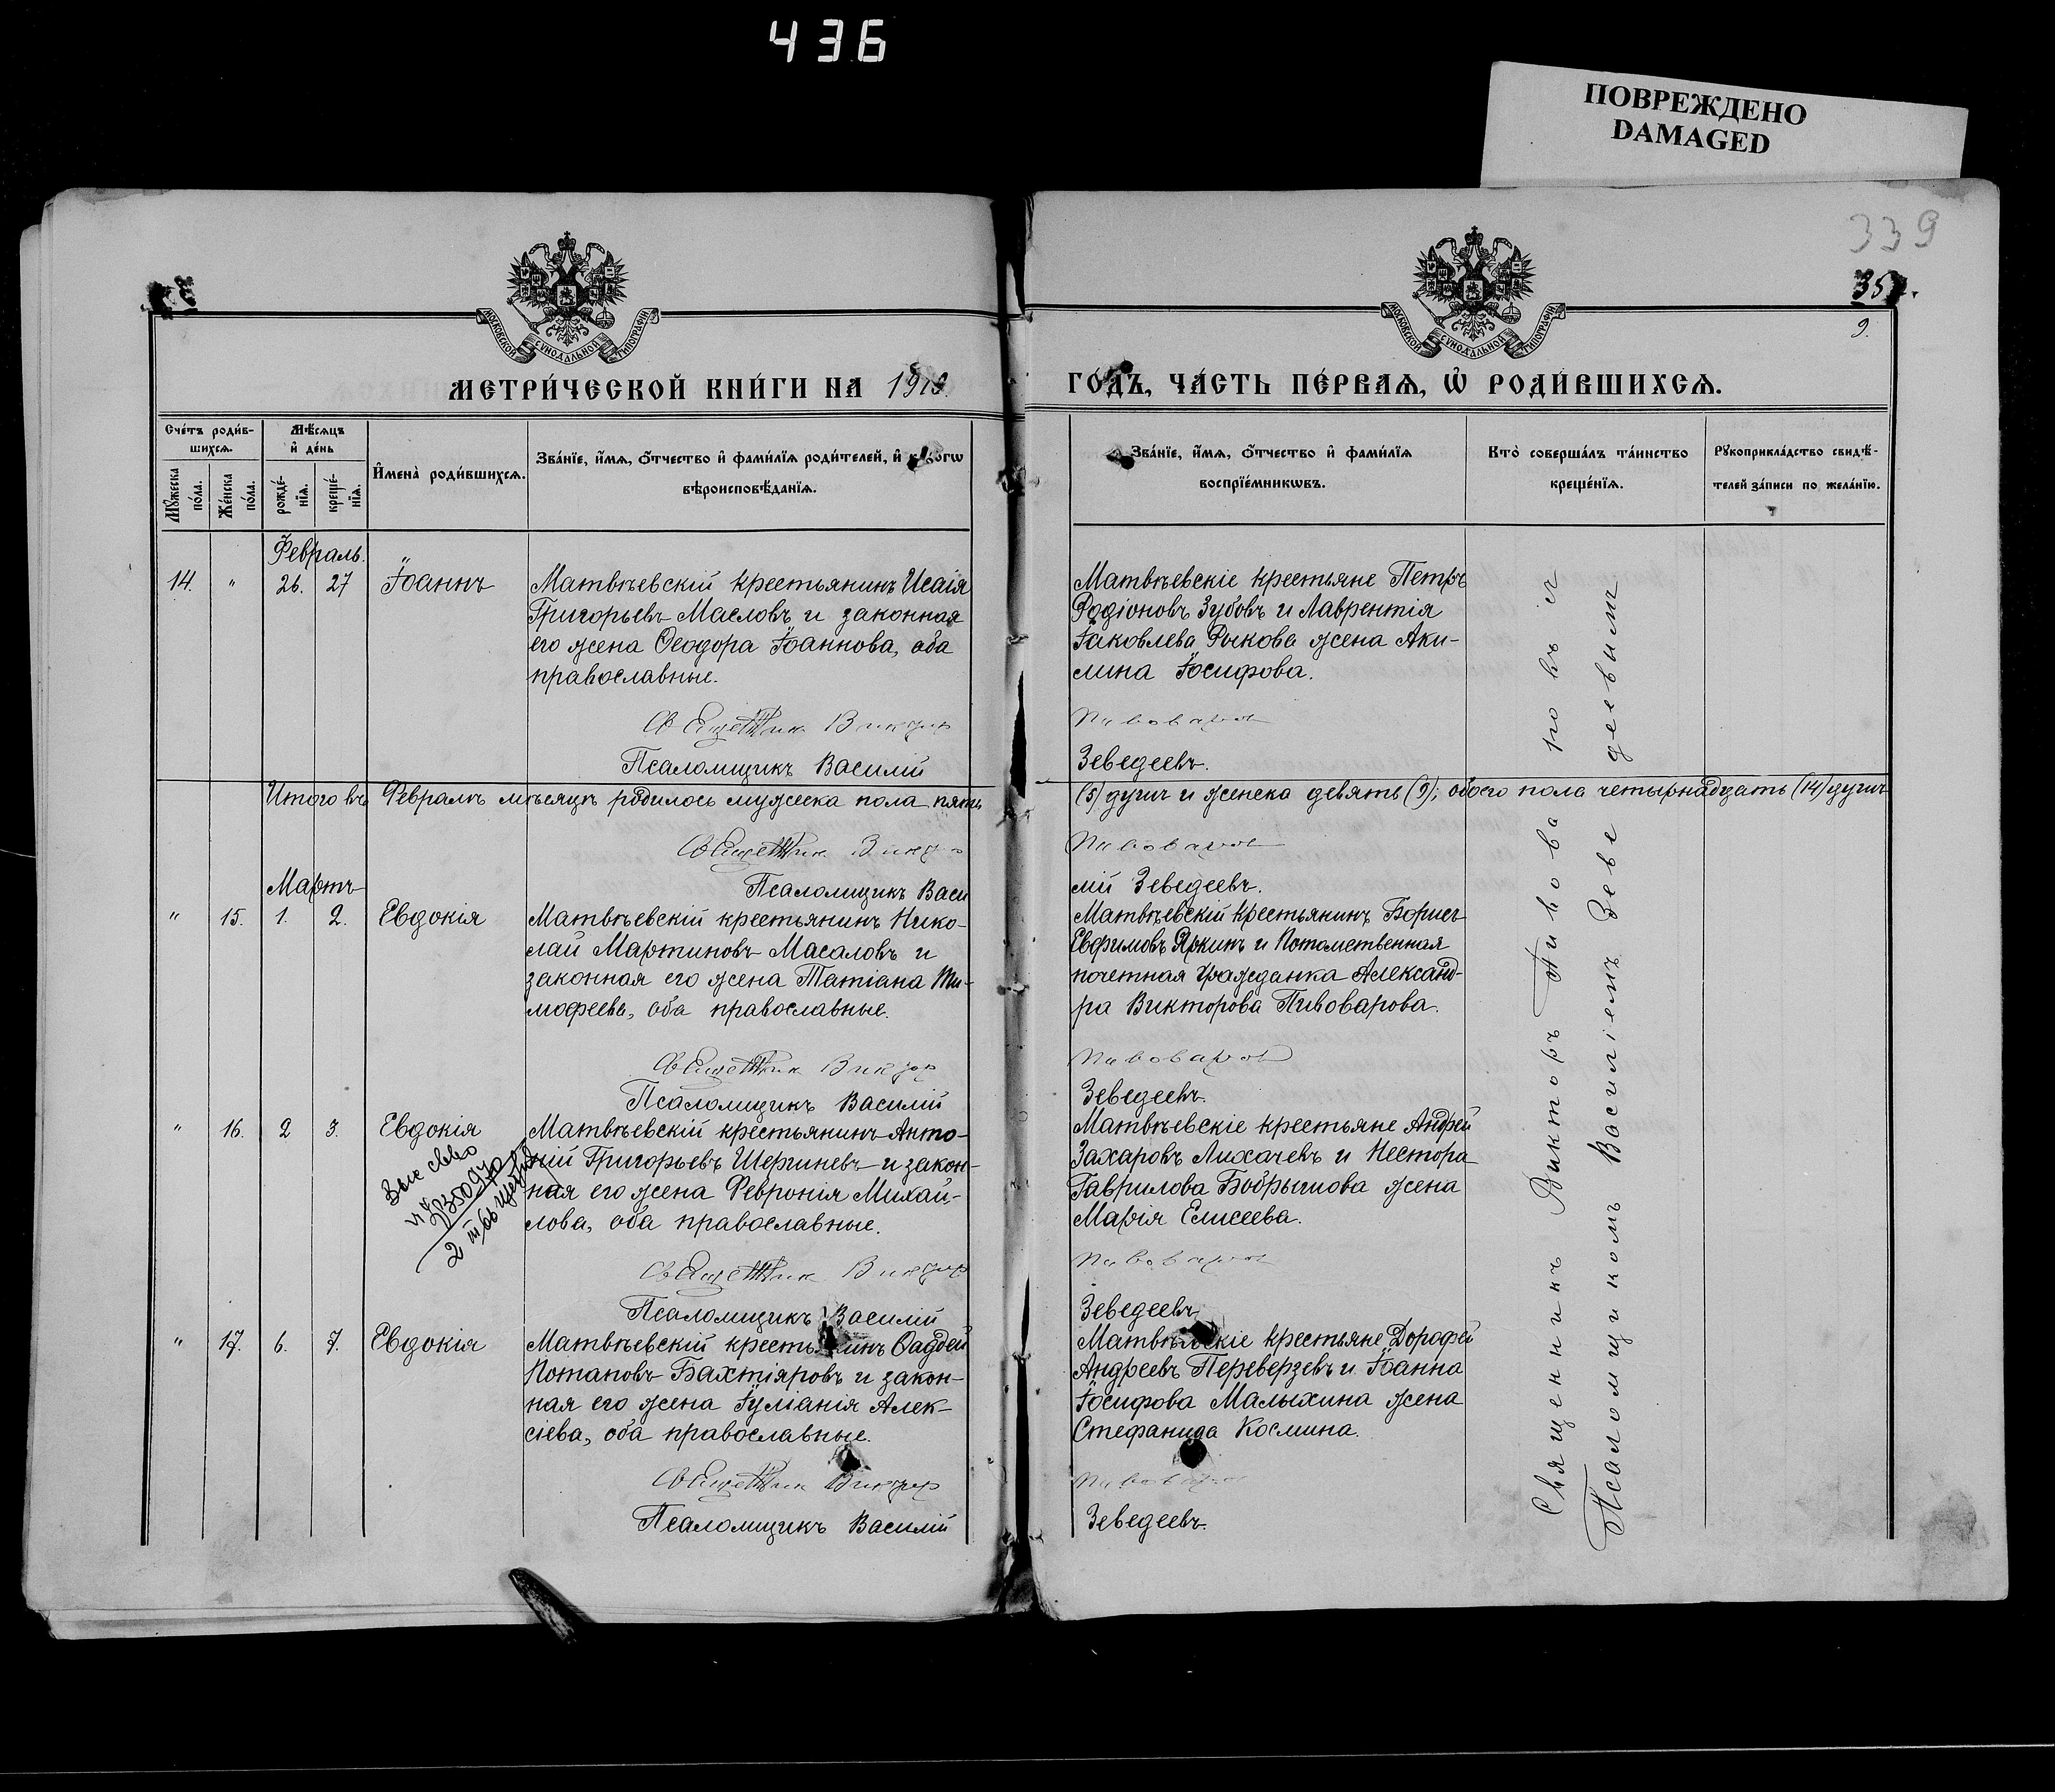 436
ПОВРЕЖДЕНО
DAMAGED
339
35
9.
МОСКОВСКОЙ СУНОДАЛЬНОЙ ТИПОГРАФІИ
МОСКОВСКОЙ СУНОДАЛЬНОЙ ТИПОГРАФІИ
МЕТРИ́ЧЕСКОЙ КНИ́ГИ НА 1913.
ГО́ДЪ, ЧА́СТЬ ПЕ́РВАѦ, Ѡ҆ РОДИ́ВШИХСѦ.
Сче́тъ роди́в-
шихсѧ.
Мꙋ́жеска
по́ла.
Же́нска
по́ла.
Мѣ́сѧцъ
и҆ де́нь
рожде́-
нїѧ.
креще́-
нїѧ.
И҆мена̀ роди́вшихсѧ.
Зва́нїе, и҆́мѧ, ѻ҆́тчество и҆ фами́лїѧ роди́телей, и҆
вѣроисповѣ́данїѧ.
Зва́нїе, и҆́мѧ, ѻ҆́тчество и҆ фами́лїѧ
воспрїе́мникѡвъ.
Кто̀ соверша́лъ та́инство
креще́нїѧ.
Рꙋкоприкла́дство свидѣ́-
телей за́писи по жела́нїю.
Февраль.
14. " 26. 27 Іоаннъ
Матвѣевскій крестьянинъ Исаія
Григорьевъ Масловъ и законная
его жена Ѳеодора Іоаннова, оба
православные.
Священник Виктор
Псаломщикъ Василій
Матвѣевскіе крестьяне Петръ
Родіоновъ Зубовъ и Лаврентія
Іаковлева Рыкова жена Аки-
лина Іосифова.
Пивоваров
Зеведеевъ.
Итого въ Февралѣ мѣсяцѣ родилось мужеска пола пять
(5) душъ и женска девять (9); обоего пола четырнадцать (14) душъ
Священник Виктор
Псаломщикъ Васи
Пивоваров
лій Зеведеевъ.
Мартъ
" 15. 1. 2. Евдокія
Матвѣевскій крестьянинъ Нико-
лай Мартиновъ Масаловъ и
законная его жена Татіана Ти-
мофеева, оба православные.
Священник Виктор
Псаломщикъ Василій
Матвѣевскій крестьянинъ Борисъ
Евфимовъ Яркинъ и Потомственная
почетная гражданка Александ-
ра Викторова Пивоварова.
Пивоваров
Зеведеевъ.
" 16. 2 3. Евдокія
Матвѣевскій крестьянинъ Анто-
ній Григорьевъ Шергиневъ и закон-
ная его жена Февронія Михай-
лова, оба православные.
Священник Виктор
Псаломщикъ Василій
Матвѣевскіе крестьяне Андрей
Захаровъ Лихачевъ и Нестора
Гаврилова Бобрышова жена
Марія Елисеева.
Пивоваров
Зеведеевъ.
" 17. 6. 7. Евдокія
Матвѣевскій крестьянинъ Ѳаддей
Потаповъ Бахтіяровъ и закон-
ная его жена Іуліанія Алек-
сіева, оба православные.
Священник Виктор
Псаломщикъ Василій
Матвѣевскіе крестьяне Дорофей
Андреевъ Переверзевъ и Іоанна
Іосифова Малыхина жена
Стефанида Космина.
Пивоваров
Зеведеевъ.
Священникъ Викторъ Пивоваровъ съ
Псаломщикомъ Василіемъ Зеведеевымъ